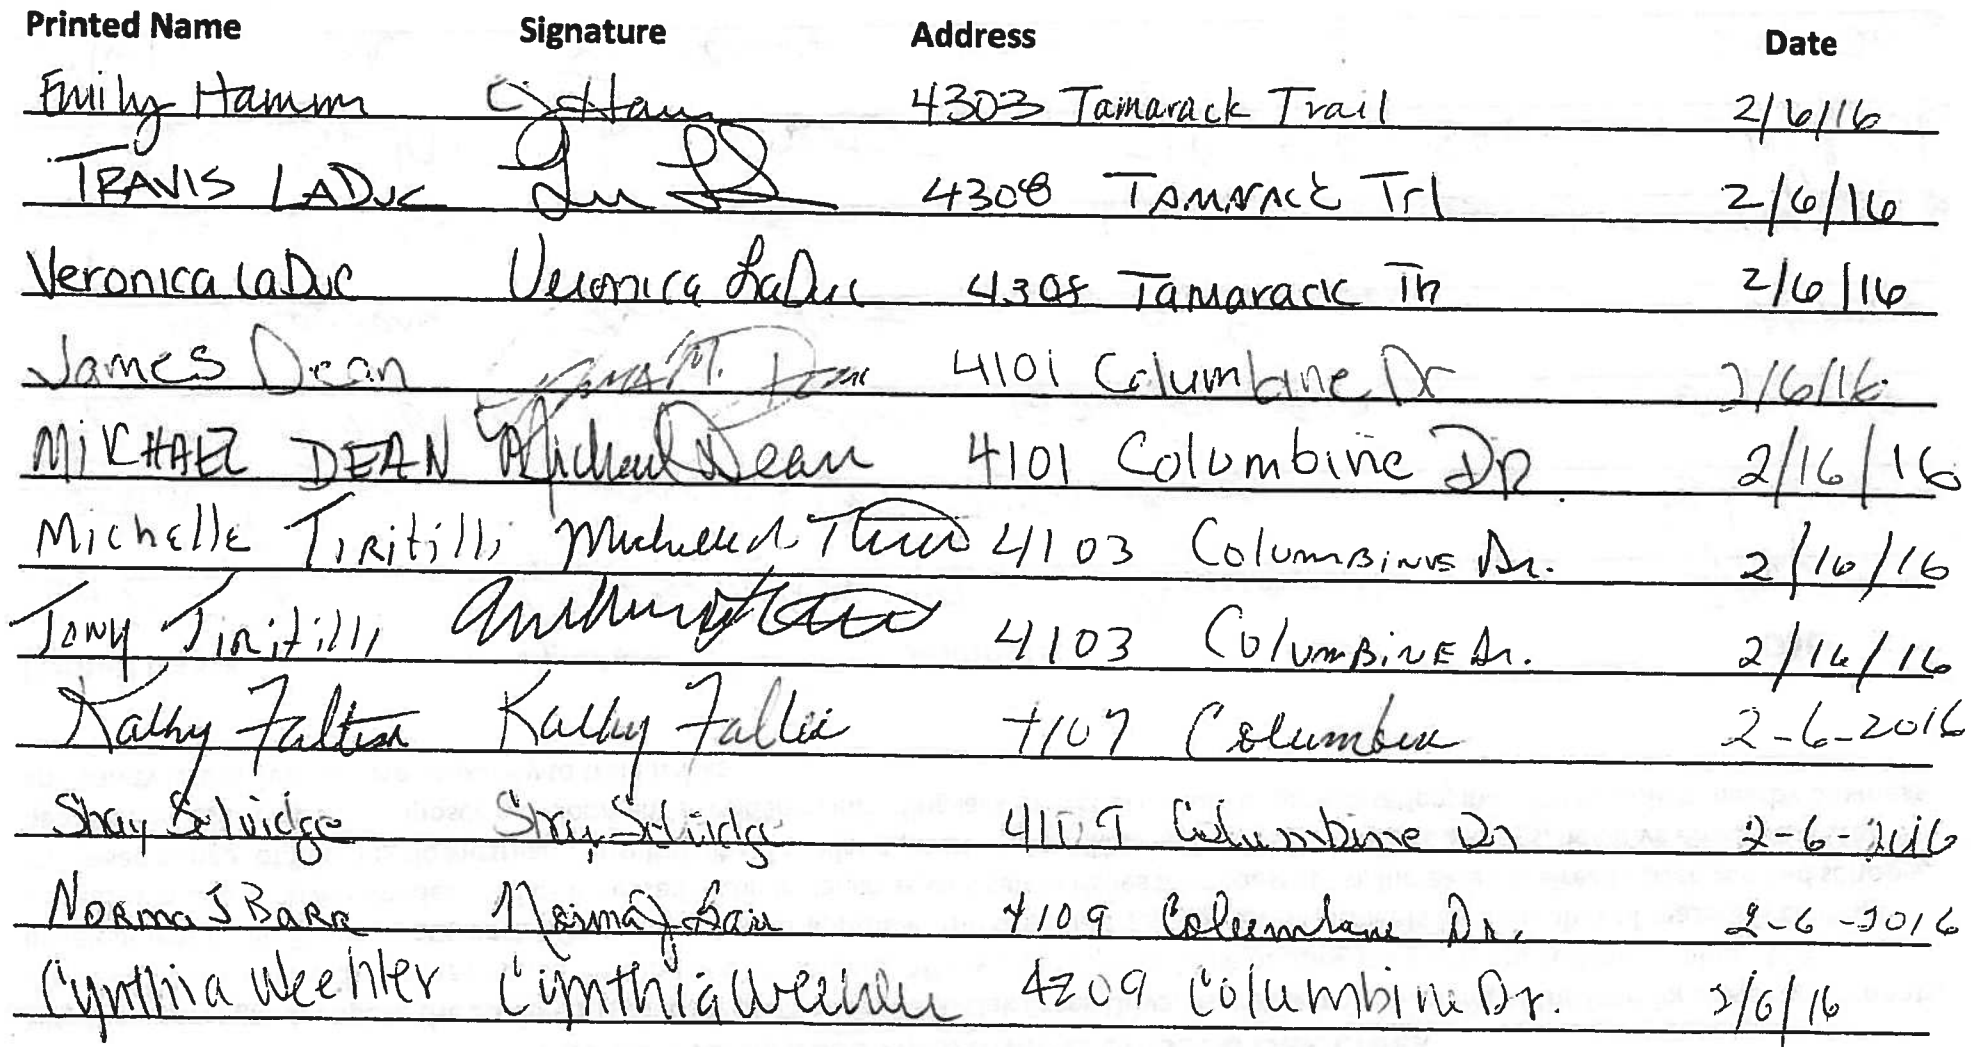 Printed Name Signature Address Date
Emily Hamm 4303 Tamarack Trail 2/6/16
TRAVIS LADUC 4308 TAMARACK Trl 2/6/16
Veronica LaDuc Veronica LaDuc 4308 Tamarack Trl 2/6/16
James Dean James M. Dean 4101 Columbine Dr 2/6/16
MIKHAEL DEAN Michael Dean 4101 Columbine DR 2/16/16
Michelle Tiritilli Michelle 4103 Columbine Dr. 2/16/16
Tony Tiritilli Anthony 4103 Columbine Dr. 2/16/16
Kathy Kathy 4107 Columbine 2-6-2016
Shay Selvidge Shay Selvidge Columbine Dr 2-6 2016
Norma J Barr Norma J Barr 4109 Columbine Dr. 2-6-2016
Cynthia Weehler Cynthia Weehler 4209 Columbine Dr. 2/6/16